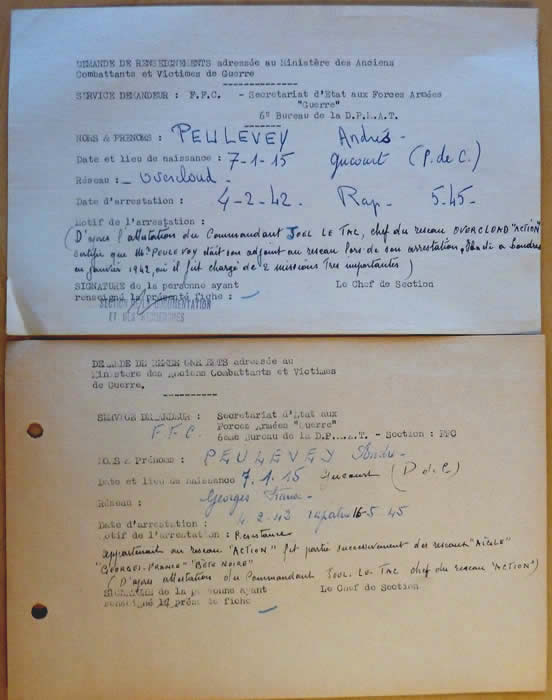 DEMANDE DE RENSEIGNEMENTS adressée au Ministère des Anciens
Combattants et Victimes de Guerre
SERVICE DEMANDEUR : F.F.C. - Secretariat d'Etat aux Forces Armées
"Guerre"
6º Bureau de la D.P.L.A.T.
NOMS & PRENOMS : PEULEVEY André -
Date et lieu de naissance : 7-1-15 Gucourt (P. de C.)
Réseau : - Overcloud -
Date d'arrestation : 4-2-42. Rap. 5.45-
Motif de l'arrestation :
(D'après l'attestation du Commandant JOEL LE TAC, chef du reseau OVERCLOAD "ACTION"
certifie que Mr PEULEVOY était son adjoint au reseau lors de son arrestation, à Londres
en janvier 1942, où il fut chargé de 2 missions très importantes)
SIGNATURE de la personne ayant Le Chef de Section
renseigné la présente fiche :
SECTION DOCUMENTATION
ET DES RECHERCHES
adressée au
Ministere des Anciens Combattants et Victimes
de Guerre.
SERVICE DEMANDEUR : Secretariat d'Etat aux
F.F.C. Forces Armées "Guerre"
6ème Bureau de la D.P.L.A.T. - Section : FFC
NOMS & Prénoms : PEULEVEY André -
Date et lieu de naissance 7.1.15 Gucourt (P d. C.)
Réseau : Georges France -
Date d'arrestation : 4.2-42 rapatrié 16-5-45
Motif de l'arrestation : Resistance
appartenant au reseau "ACTION" fit partie successivement des reseaux "AIGLE"
"GEORGES-FRANCE" "BÊTE NOIRE"
(D'après attestation du Commandant JOEL. LE TAC chef du reseau "ACTION")
SIGNATURE de la personne ayant Le Chef de Section
renseigné la présente fiche